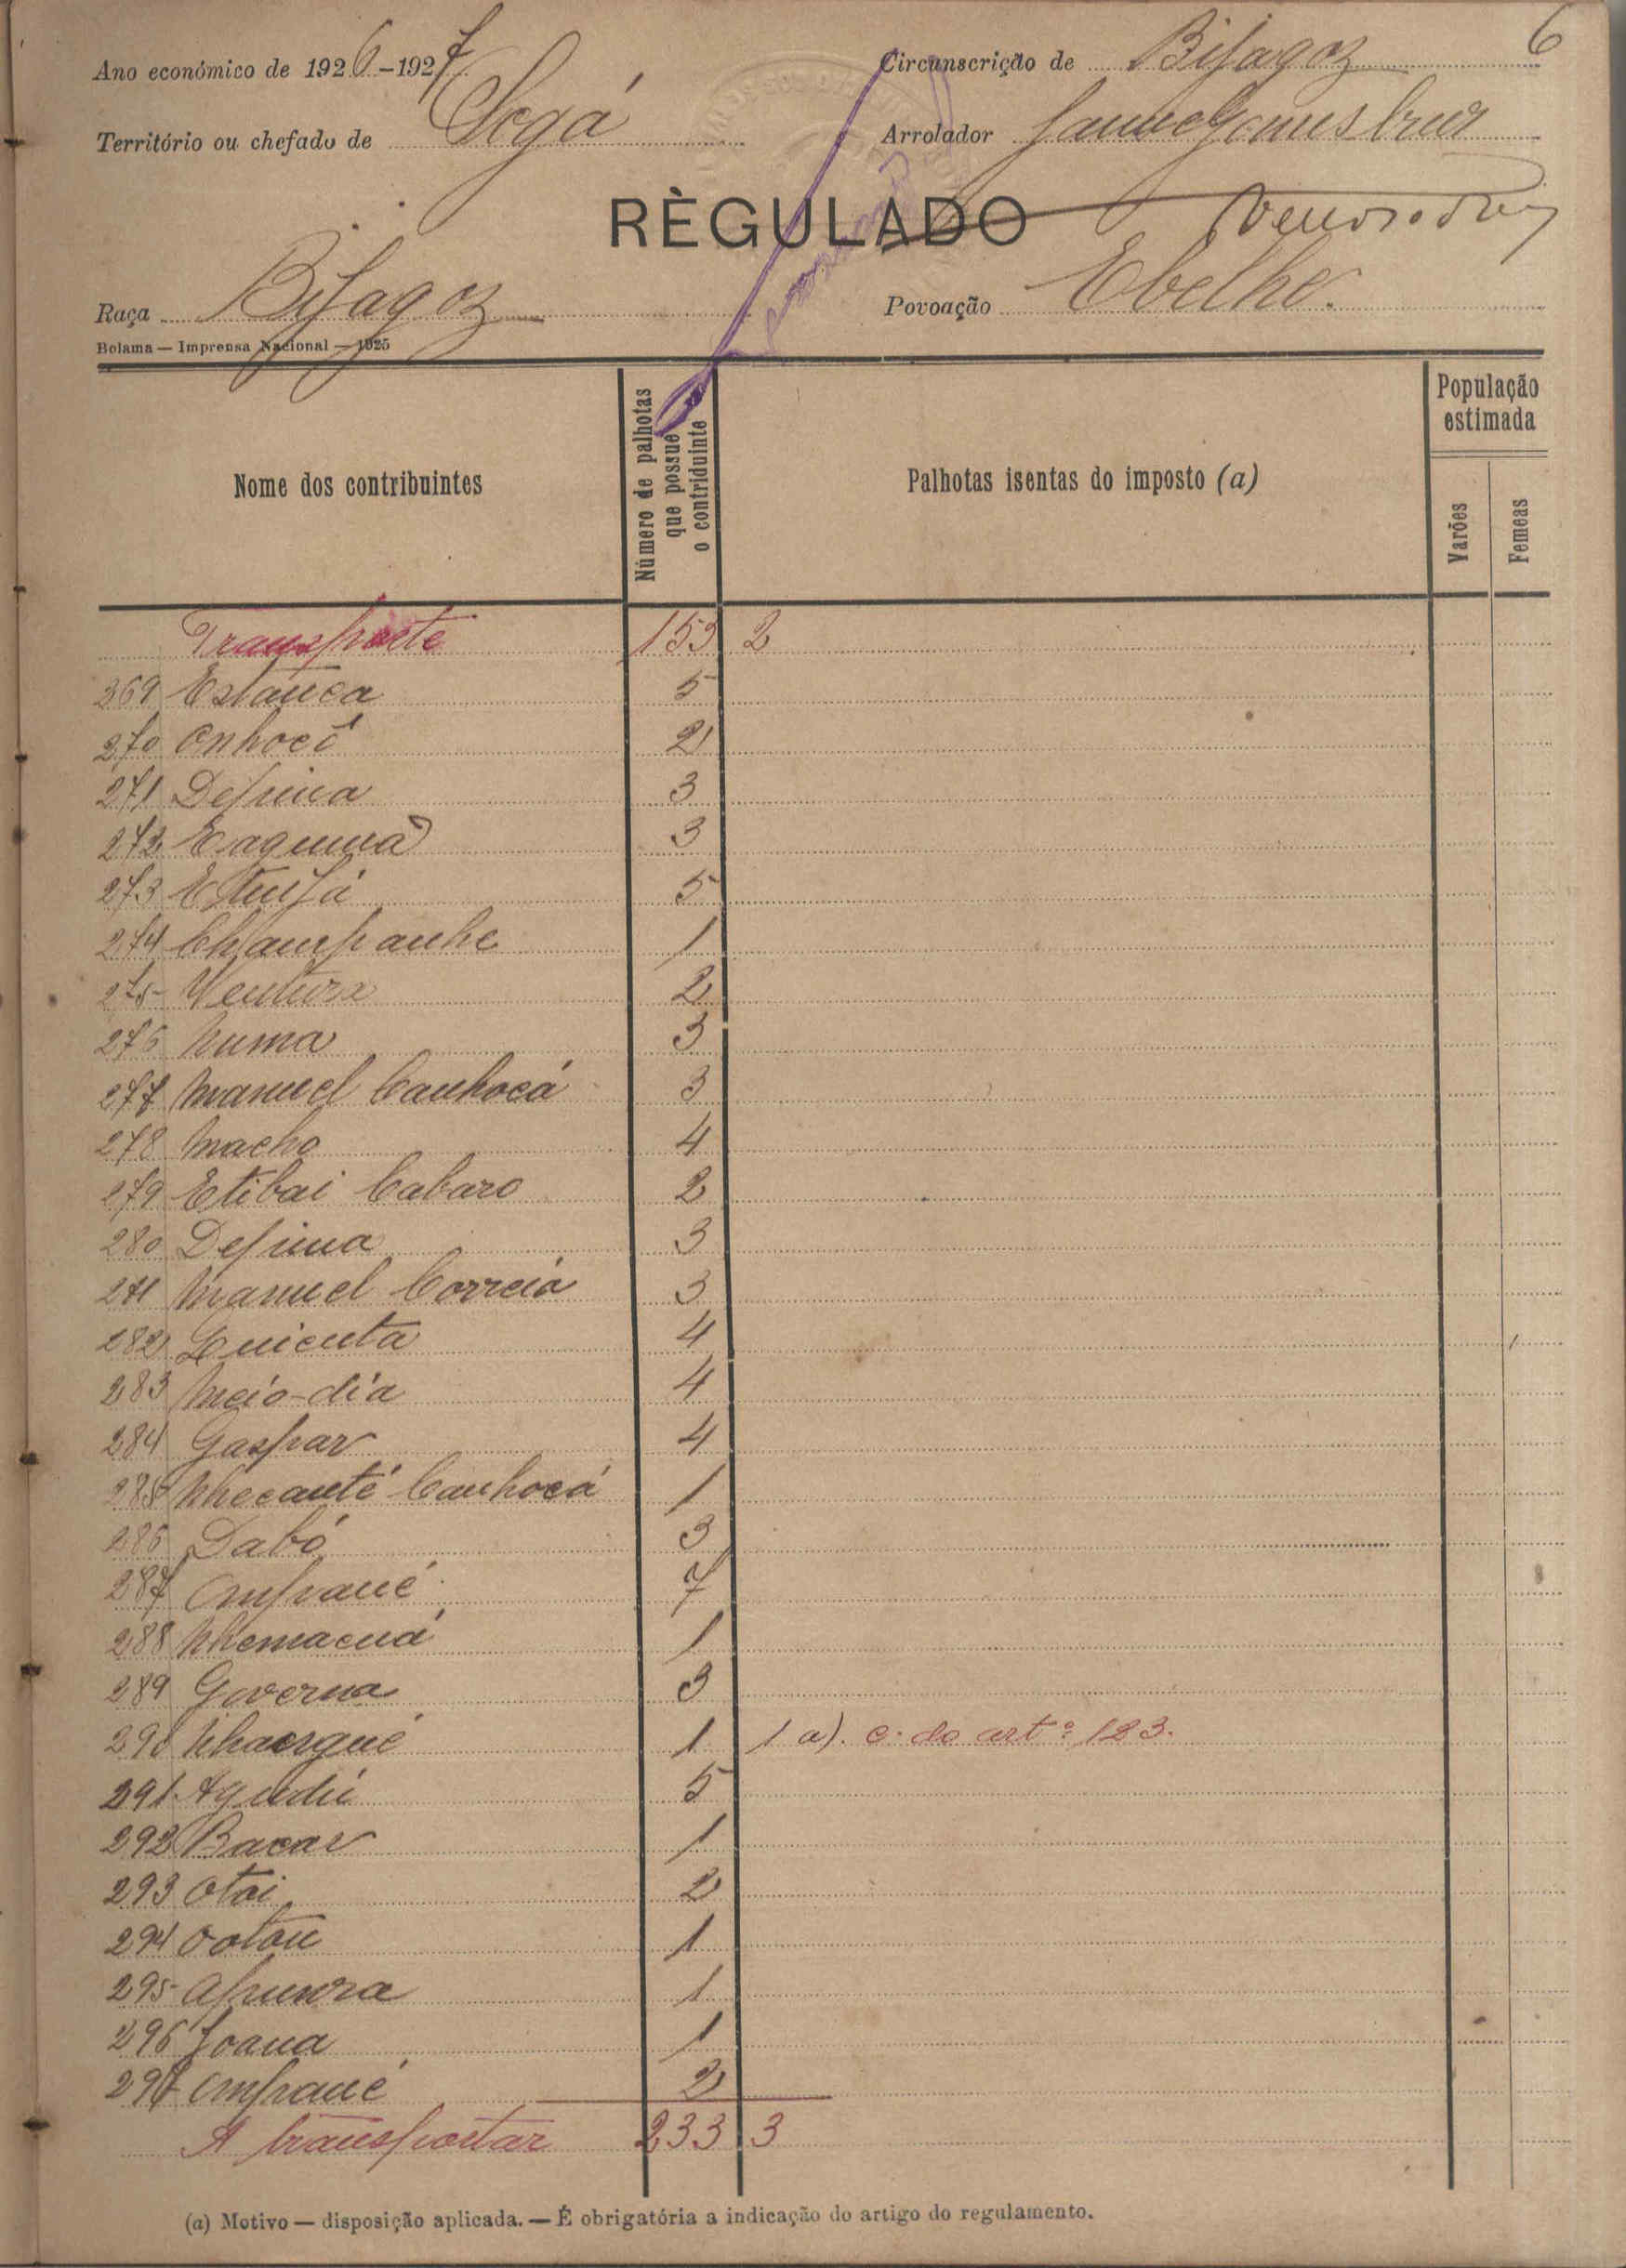 6
Ano económico de 1926-1927 Circunscrição de Bijagoz
Território ou chefado de Sogá Arrolador Gomes
RÈGULADO
Raça Bijagoz Povoação Ebelho
Bolama — Imprensa Nacional — 1925
Nome dos contribuintes
Número de palhotas que possue o contriduinte
Palhotas isentas do imposto (a)
População estimada
Varões
Femeas
Transporte 153 2
369 Estanca 5
270 Onhocê 2
271 Defuica 3
272 3
273 5
274 Champanhe 1
275 Ventura 2
276 Numa 3
277 Manuel Canhocá 3
278 Macho 4
279 Etibai Cabaro 2
280 Defuna 3
271 Manuel Correia 3
282 Quienta 4
283 Meio-dia 4
284 Gaspar 4
285 Nhecanté Canhocá 1
286 Dabó 3
287 Ompané 7
288 Nhemacuá 1
289 Governa 3
290 1 1 a). c. do artº 123.
291 5
292 Bacar 1
293 Otai 2
294 Ootou 1
295 1
296 Joana 1
297 Ompané 2
A transportar 233 3
(a) Motivo — disposição aplicada. — É obrigatória a indicação do artigo do regulamento.